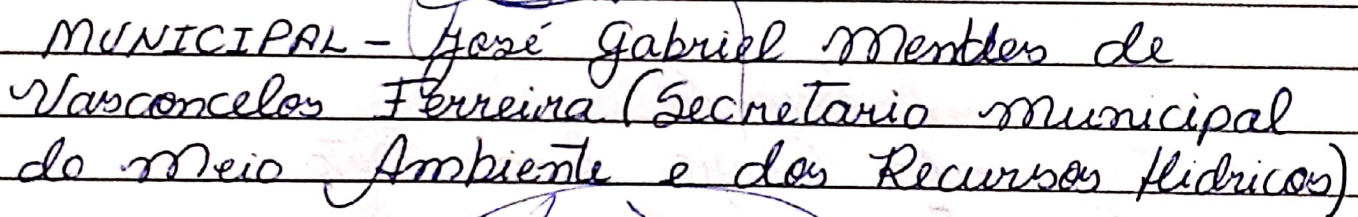 MUNICIPAL - José Gabriel Mendes de
Vasconcelos Ferreira (Secretario municipal
do Meio Ambiente e dos Recursos Hidricos)